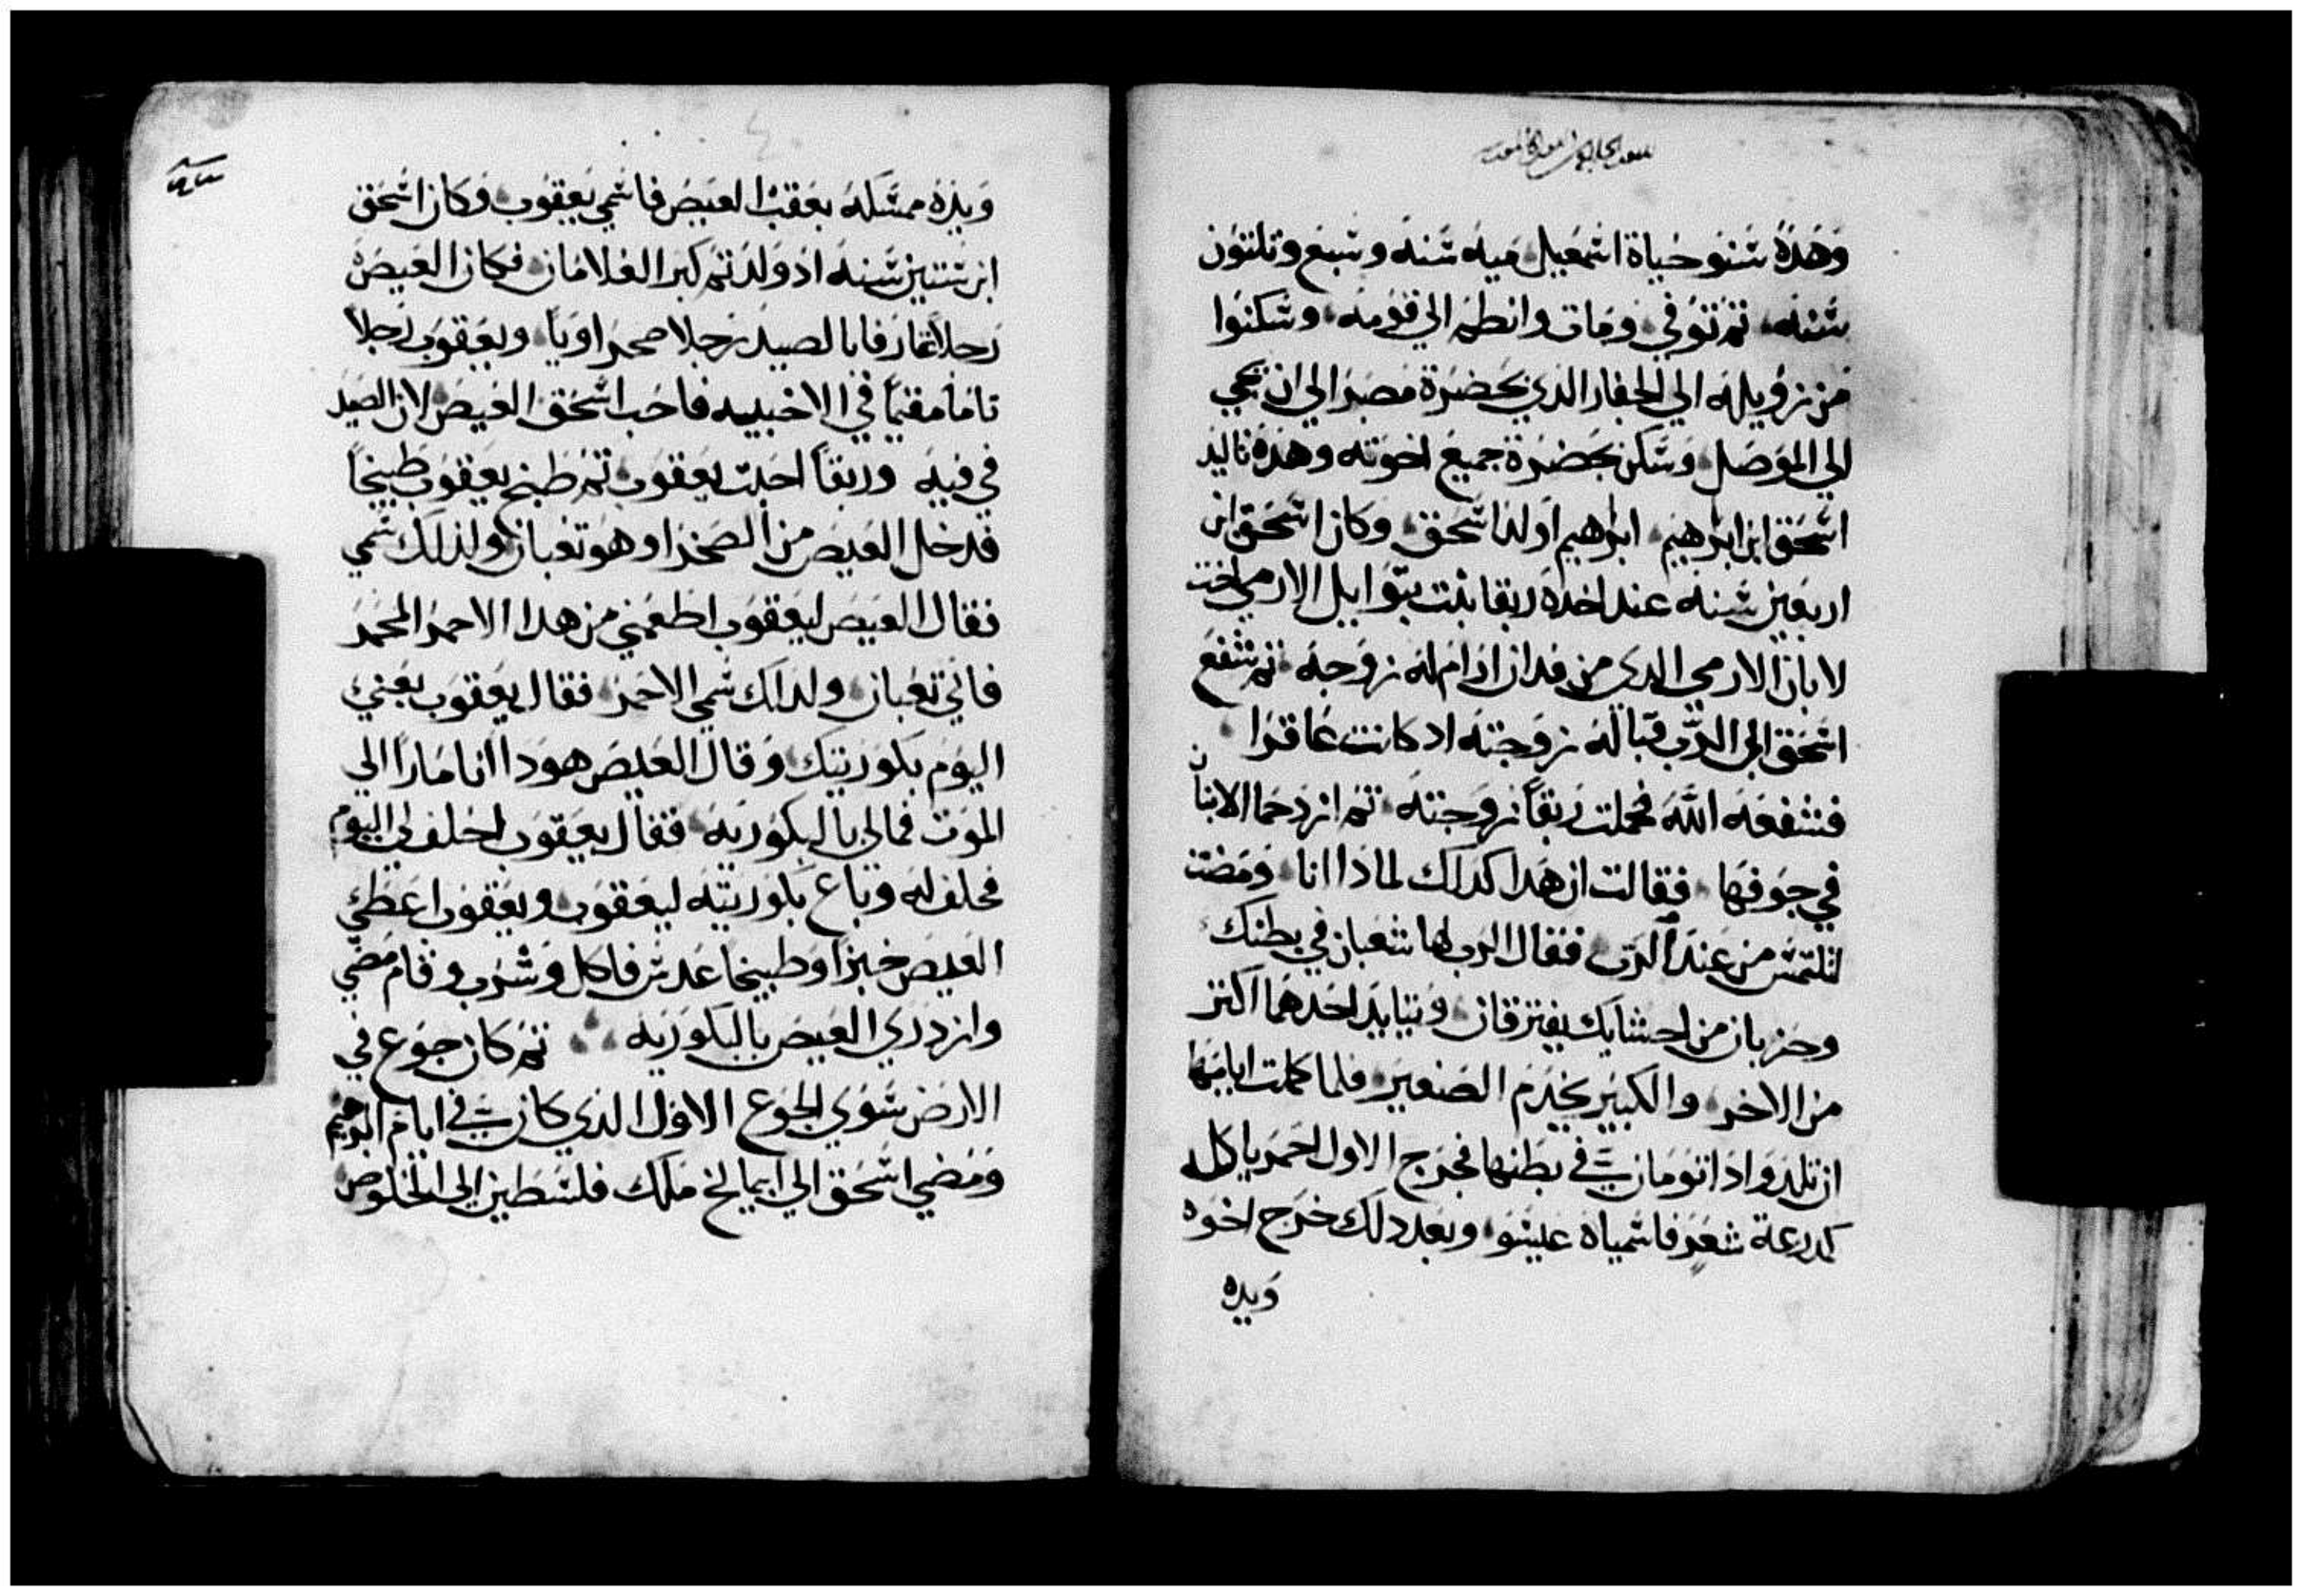 وهذه سنو حياة اسمعيل ميه سنه وسبع وتلتون
سنه ثم توفي ومات وانظم الي قومه وسكنوا
من زويله الي الجفار الذي بحضرة مصر الي ان تجي
الي الموصل وسكن بحضرة جميع اخوته وهذه تاليد
اسحق ابن ابرهيم ابرهيم اولد اسحق وكان اسحق ابن
اربعين سنه عند اخده ربقا بنت بتوايل الارمي اخت
لابان الارمي الدي من فدان ارام له زوجه ثم شفع
اسحق الي الرب قبالة زوجته اد كانت عاقرا
فشفعه الله فحملت ربقا زوجته ثم ازدحما الابنان
في جوفها فقالت ان هدا كداك لمادا انا ومضت
لتلتمس من عند الرب فقال الرب لها شعبان في بطنك
وحزبان من احشايك يفترقان ويتايد احدهما اكتر
من الاخر والكبير يخدم الصغير فلما كملت ايامها
ان تلد واذا تومان في بطنها فخرج الاول احمر ياكله
كدرعة شعر فاسمياه عيسو وبعد دلك خرج اخوه
ويده
ويده ممسكه بعقب العيص فاسمي يعقوب وكان اسحق
ابن ستين سنه اذ ولد ثم كبرا الغلامان فكان العيص
رجلا عارفا بالصيد رجلا صحراويا ويعقوب رجلا
تاما مقيما في الاخبيه فاحب اسحق العيص لان الصيد
في فيه وربقا احبت يعقوب ثم طبخ يعقوب طبيخا
فدخل العيص من الصحرا وهو تعبان ولذلك سمي
فقال العيص ليعقوب اطعمني من هدا الاحمر المحمر
فاني تعبان ولداك سمي الاحمر فقال يعقوب بعني
اليوم بكوريتك وقال العيص هودا انا مارا الي
الموت فمالي بالبكوريه فقال يعقوب احلف لي اليوم
فحلف له وباع بكوريته ليعقوب ويعقوب اعطي
العيص خبزا وطبيخا عدس فاكل وشرب وقام مضي
وازدري العيص بالبكوريه ثم كان جوع في
الارض سوي الجوع الاول الذي كان في ايام ابرهيم
ومضي اسحق الي ابيمالخ ملك فلسطين الي الخلوص